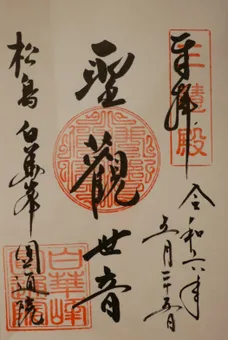 奉拝
三慧殿
令和六年
五月二十五日
聖觀世音
松島 白華峯 圓通院
白華峰